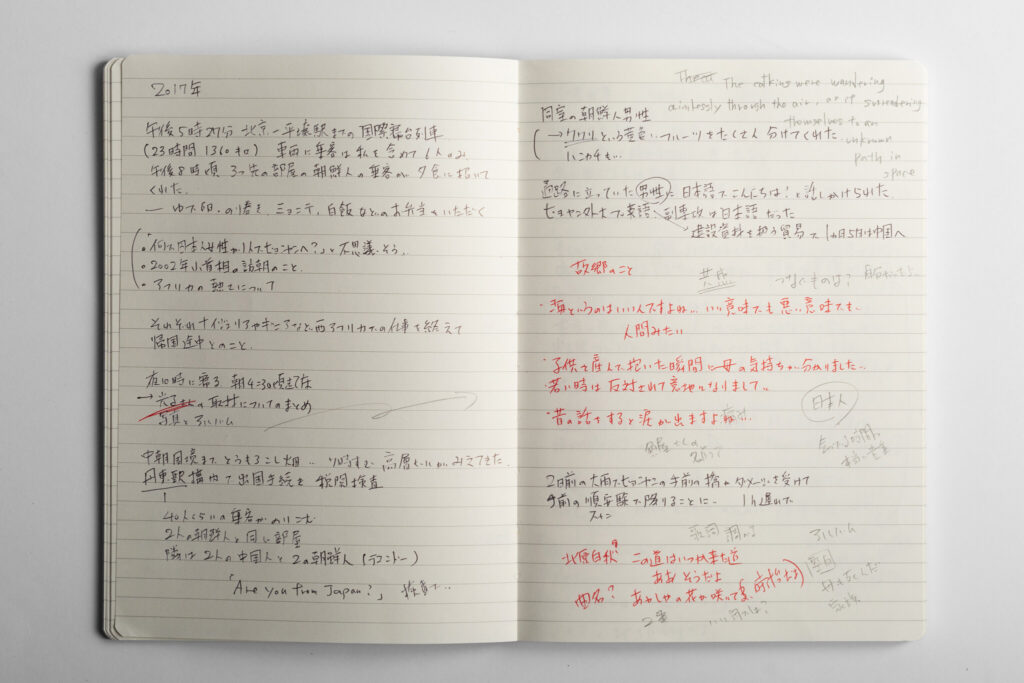 2017年
午後5時27分 北京―平壌駅までの国際寝台列車
(23時間 1360キロ) 車両に乗客は私を含めて6人のみ
午後8時頃 3つ先の部屋の朝鮮人の乗客が夕食に招いて
くれた.
― ゆで卵、の焼き、ミョンテ、白飯などのお弁当をいただく
・「何で日本人女性が1人でピョンヤンへ?」と不思議そう.
・2002年小首相の訪朝のこと.
・アフリカの熱さについて
それぞれナイジェリアやギニアなど西アフリカでの仕事を終えて
帰国途中とのこと.
夜10時に寝る 朝4:30頃起床
→ の取材についてのまとめ
写真とアルバム
中朝国境までとうもろこし畑.. 高層ビルがみえてきた.
丹東駅構内で出国手続き 税関検査
40人くらいの乗客がのりこむ
2人の朝鮮人と同じ部屋
隣は2人の中国人と2の朝鮮人
「Are you from Japan?」
The catkins were wandering
ainlessly through the air, as if surrendering
themselves to an
unknown
path in
space
同室の朝鮮人男性
→ という フルーツをたくさん分けてくれた
ハンカチも..
通路に立っていた男性に日本語で「こんにちは!」と話しかけられた
ピョンヤン外大で英語、副専攻は日本語だった
建設資材を扱う貿易で1カ月5回は中国へ
故郷のこと
共感 つなぐものは?
・海というのはいいんですよね... いい意味でも悪い意味でも.
人間みたい
・子供を産んで抱いた瞬間に母の気持ちが分かりました..
若い時は反対されて意地になりまして..
・昔の話をすると涙が出ますよ
日本人
2日前の大雨でピョンヤンの手前の橋がダメージを受けて
手前の順安駅で降りることに.. 1h遅れで
スナン
歌詞 調べる アルバム
北原白秋 この道はいつか来た道
ああ そうだよ
曲名? あかしやの花が咲いてる
2番
家族